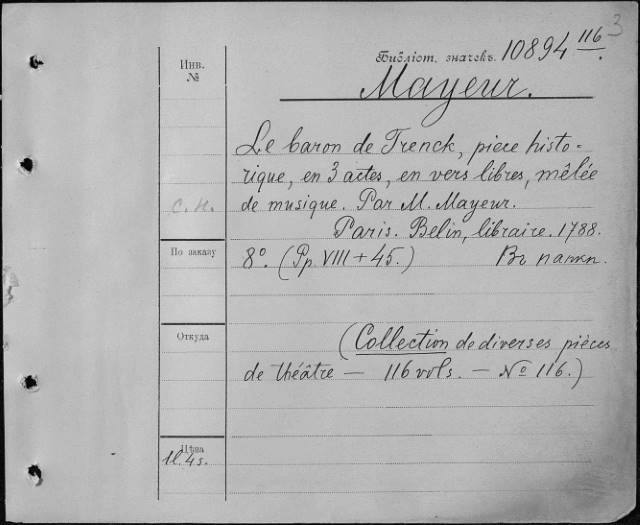 3
Инв.
№
Библіот. значекъ. 10894 116.
Mayeur.
Le baron de Trenck, piece histo-
rique, en 3 actes, en vers libres, mêlée
с. н.
de musique. Par M. Mayeur.
Paris. Belin, libraire. 1788.
По заказу
8º. (Pp. VIII + 45.) Въ папкѣ.
Откуда
(Collection de diverses pièces
de théâtre — 116 vols. — Nº 116.)
Цѣна